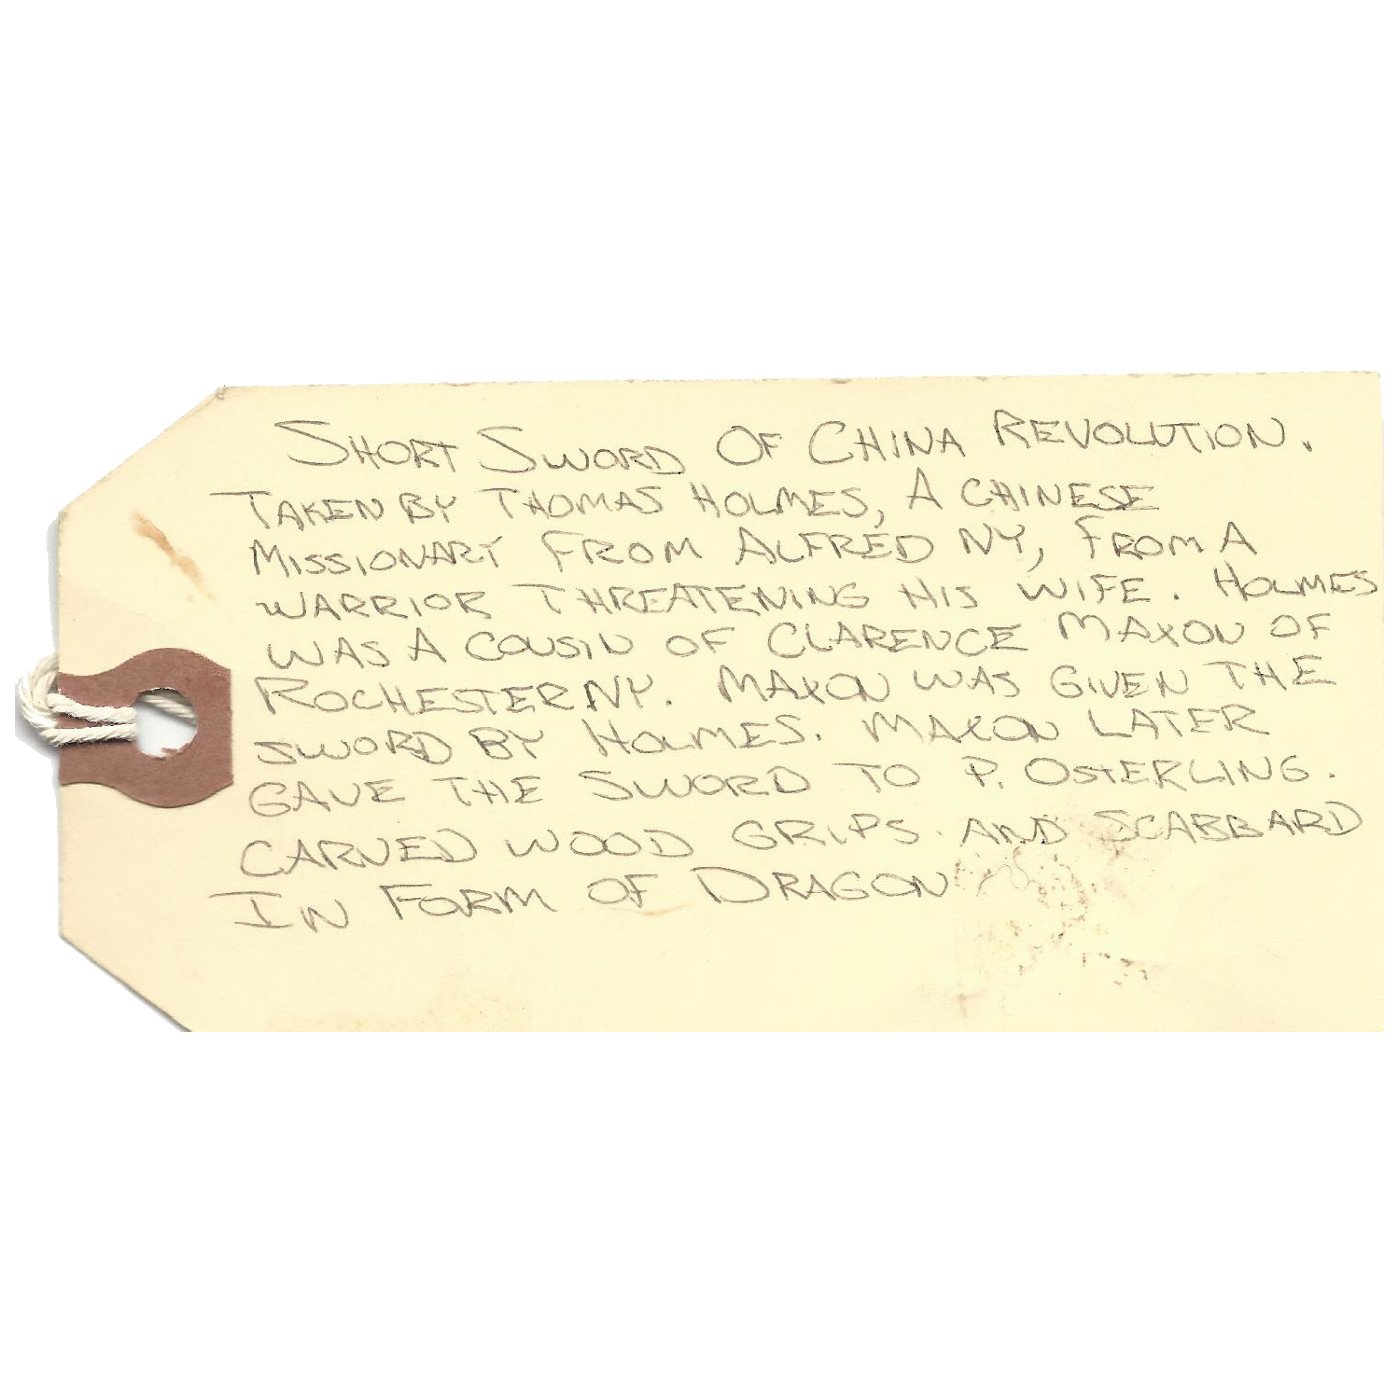 SHORT SWORD OF CHINA REVOLUTION.
TAKEN BY THOMAS HOLMES, A CHINESE
MISSIONARY FROM ALFRED NY, FROM A
WARRIOR THREATENING HIS WIFE. HOLMES
WAS A COUSIN OF CLARENCE MAXON OF
ROCHESTER NY. MAXON WAS GIVEN THE
SWORD BY HOLMES. MAXON LATER
GAVE THE SWORD TO P. OSTERLING.
CARVED WOOD GRIPS AND SCABBARD
IN FORM OF DRAGON